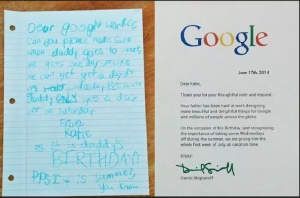 Dear google worker
Can you please make sure
when daddy goes to work
he gets one day off like
he can get a day off
on wednesday
Daddy
gets a day
off on saturday
From
Katie
P.S. it is daddy's
BIRTHDAY!
PPS. It is summer
you know
Google
June 17th, 2014
Dear Katie,
Thank you for your thoughtful note and request.
Your father has been hard at work designing
many beautiful and delightful things for Google
and millions of people across the globe.
On the occasion of his Birthday, and recognizing
the importance of taking some Wednesdays
off during the summer, we are giving him the
whole first week of July as vacation time.
Enjoy!
Daniel Shiplacoff